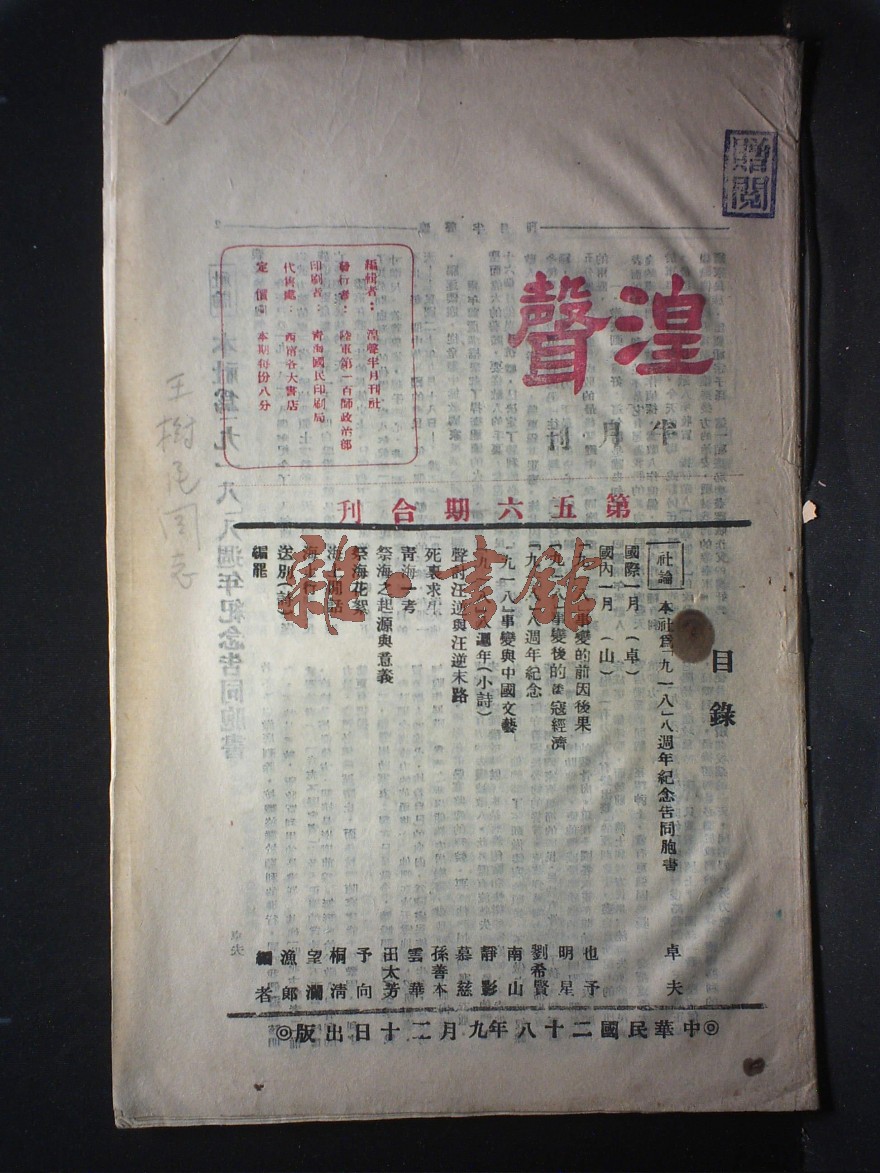 贈閱
湟聲
半月刊
編輯者：湟聲半月刊社
發行者：陸軍第一百師政治部
印刷者：青海國民印刷局
代售處：西甯各大書店
定價：本期每份八分
第五六期合刊
目錄
社論 本社為「九一八」八週年紀念告同胞書 卓夫
國際一月（卓）
國內一月（山）
「九一八」事變的前因後果 也予
「九一八」事變後的倭寇經濟 明星
「九一八」八週年紀念 劉希賢
「九一八」事變與中國文藝 南山
「九一八」八週年（小詩） 靜影
聲討汪逆與汪逆末路 慕慈
死裏求生 孫善本
青海一考 雲華
祭海之起源與意義 田太芳
祭海花絮 予向
海上閒話 桐清
海上行 望瀾
送別（詩） 漁郎
編罷 編者
◎中華民國二十八年九月二十日出版◎
王樹
同志
雜·書館